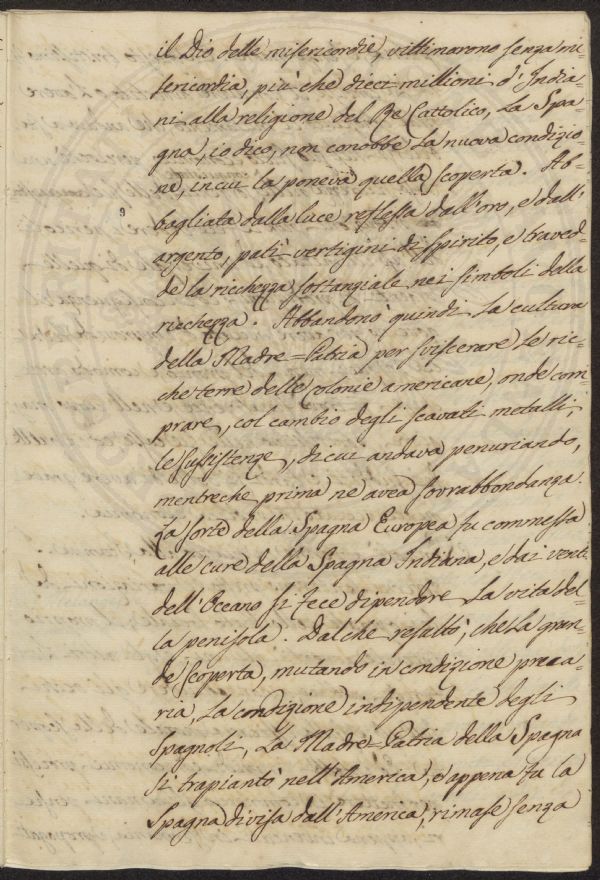 il Dio delle misericordie, vittimarono senza mi-
sericordia, più che dieci millioni d'India-
ni alla religione del Re Cattolico, La Spa-
gna, io dico, non conobbe La nuova condizio-
ne, in cui la poneva quella scoperta. Ab-
bagliata dalla luce riflessa dall'oro, e dall'
argento, patì vertigini di spirito, e travid-
de la ricchezza sostanziale nei simboli della
ricchezza. Abbandonò quindi La cultura
della Madre=Patria per sviscerare Le ric-
che terre delle Colonie americane, onde com-
prare, col cambio degli scavati metalli,
le sussistenze, di cui andava penuriando,
mentreche prima ne avea sovrabbondanza.
La sorte della Spagna Europea fu commessa
alle cure della Spagna Indiana, e dai venti
dell'Oceano si fece dipendere La vita del-
la penisola. Dal che resultò, che La gran-
de scoperta, mutando in condizione preca-
ria, La condizione indipendente degli
Spagnoli, La Madre=Patria della Spagna
si trapiantò nell'America, e appena fu la
Spagna divisa dall'America, rimase senza